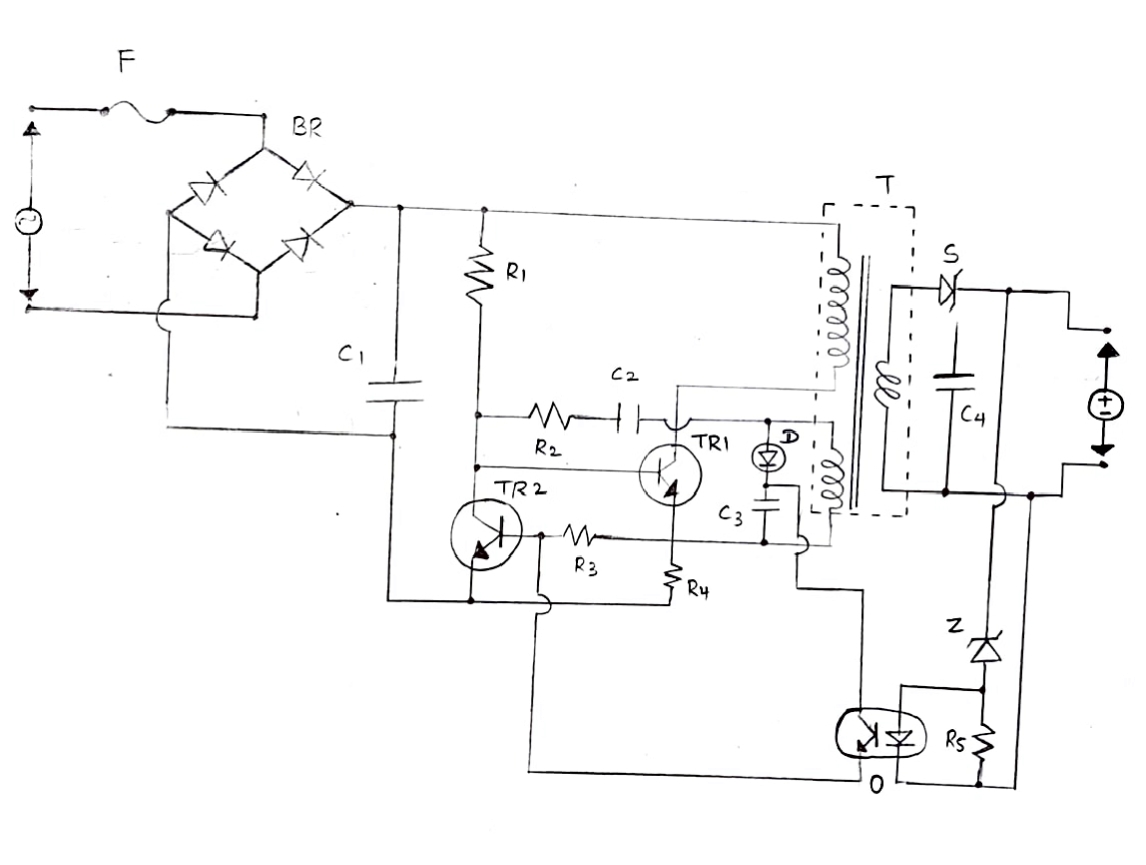 F
BR
T
S
R1
C1
C2
C4
R2
TR1
D
TR2
C3
R3
R4
Z
R5
O